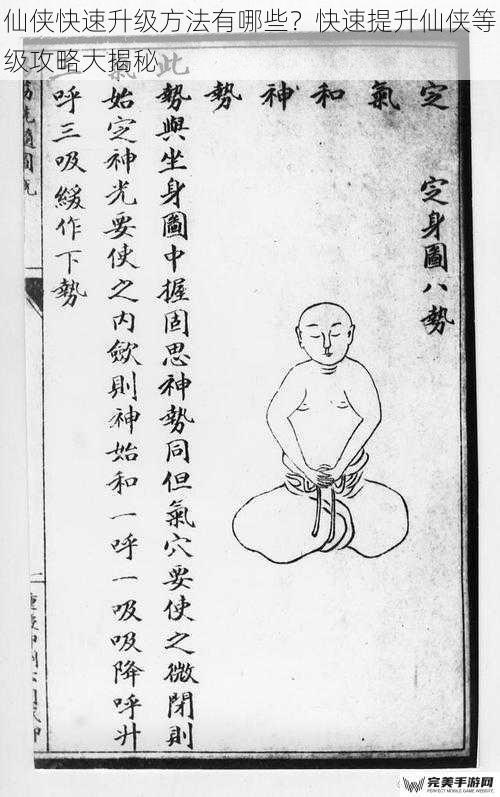 仙侠快速升级方法有哪些？快速提升仙侠等
级攻略大揭秘
定身圖八勢
定氣和神勢
此勢與坐身圖中握固思神勢同但氣穴要使之微閉則
氣始定神光要使之内斂則神始和一呼一吸吸降呼升
三呼三吸緩作下勢
完美手游网
PERFECT MOBILE GAME WEBSITE